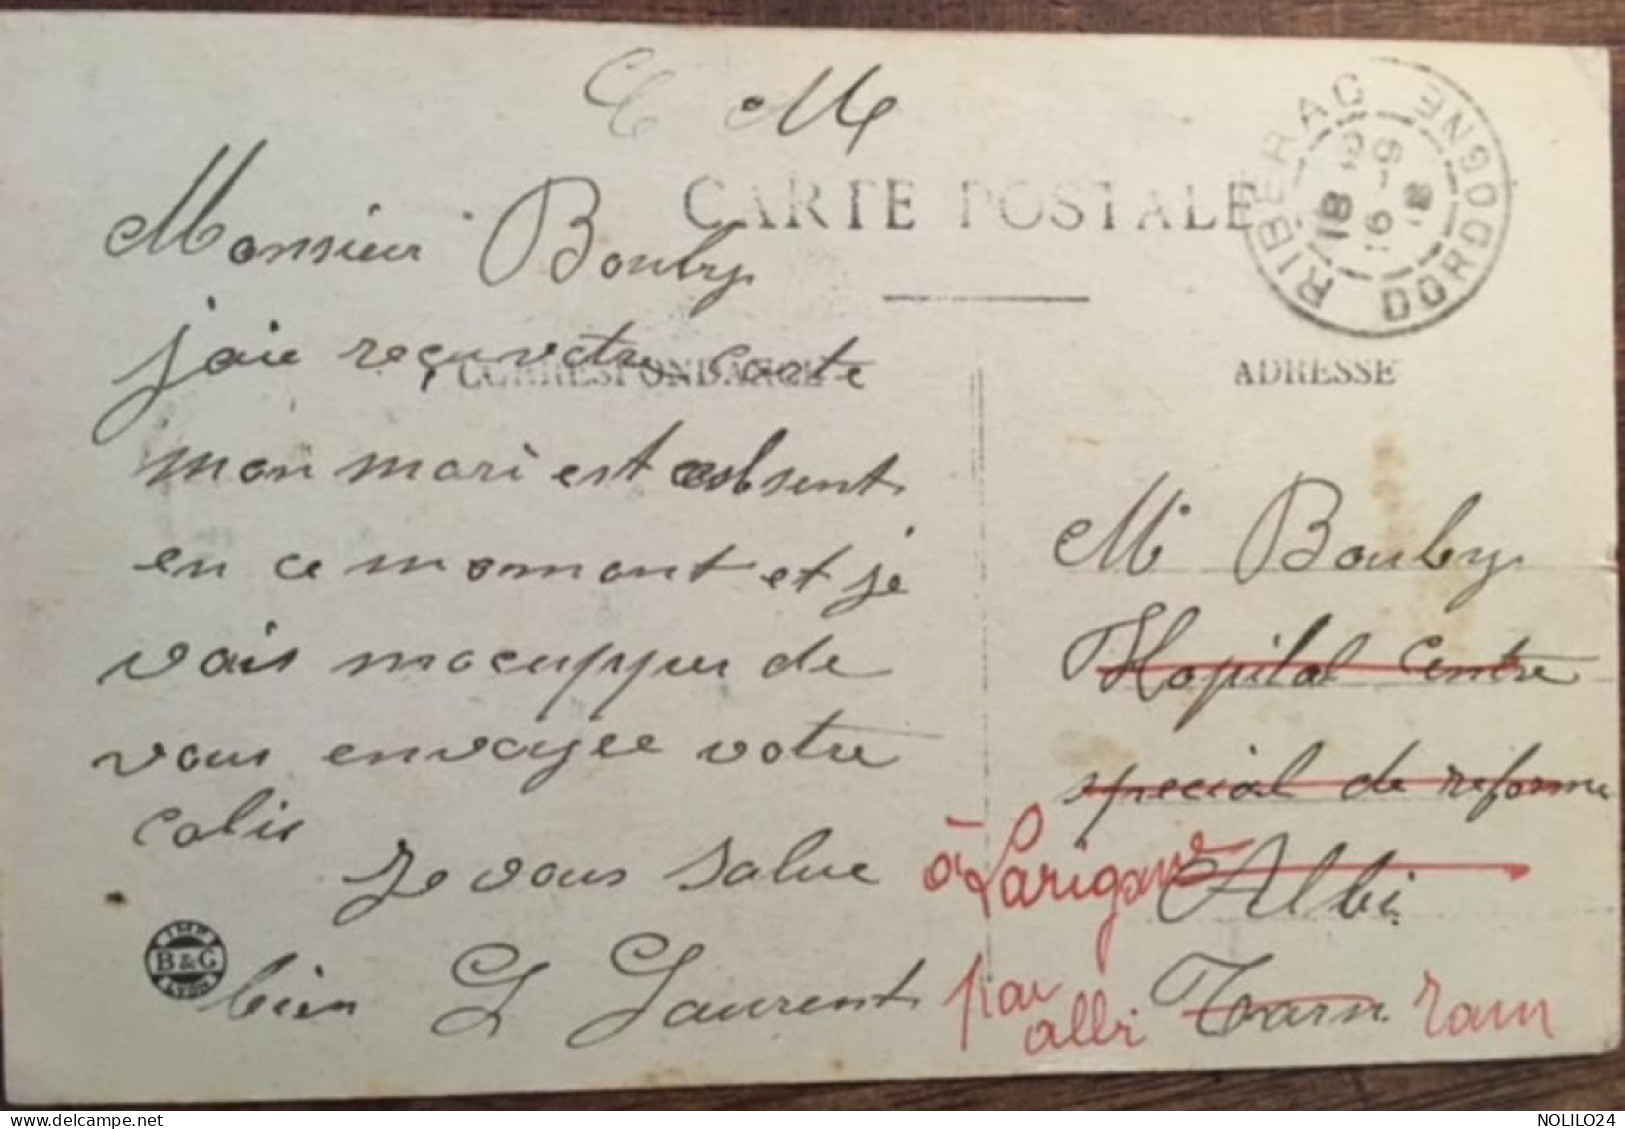 M
CARTE POSTALE
RIBERAC DORDOGNE
18
16-9
18
Monsieur Bouby
jaie reçu votre carte
CORRESPONDANCE
mon mari est absent
en ce momont et je
vais mocupper de
vous envoyée votre
colis
Je vous salue
bien L Laurent
IMP.
B & G
LYON
ADRESSE
Mr Bouby
Hopital Centre
special de reforme
Albi
Tarn
à
par albi
Tarn
NOLILO24